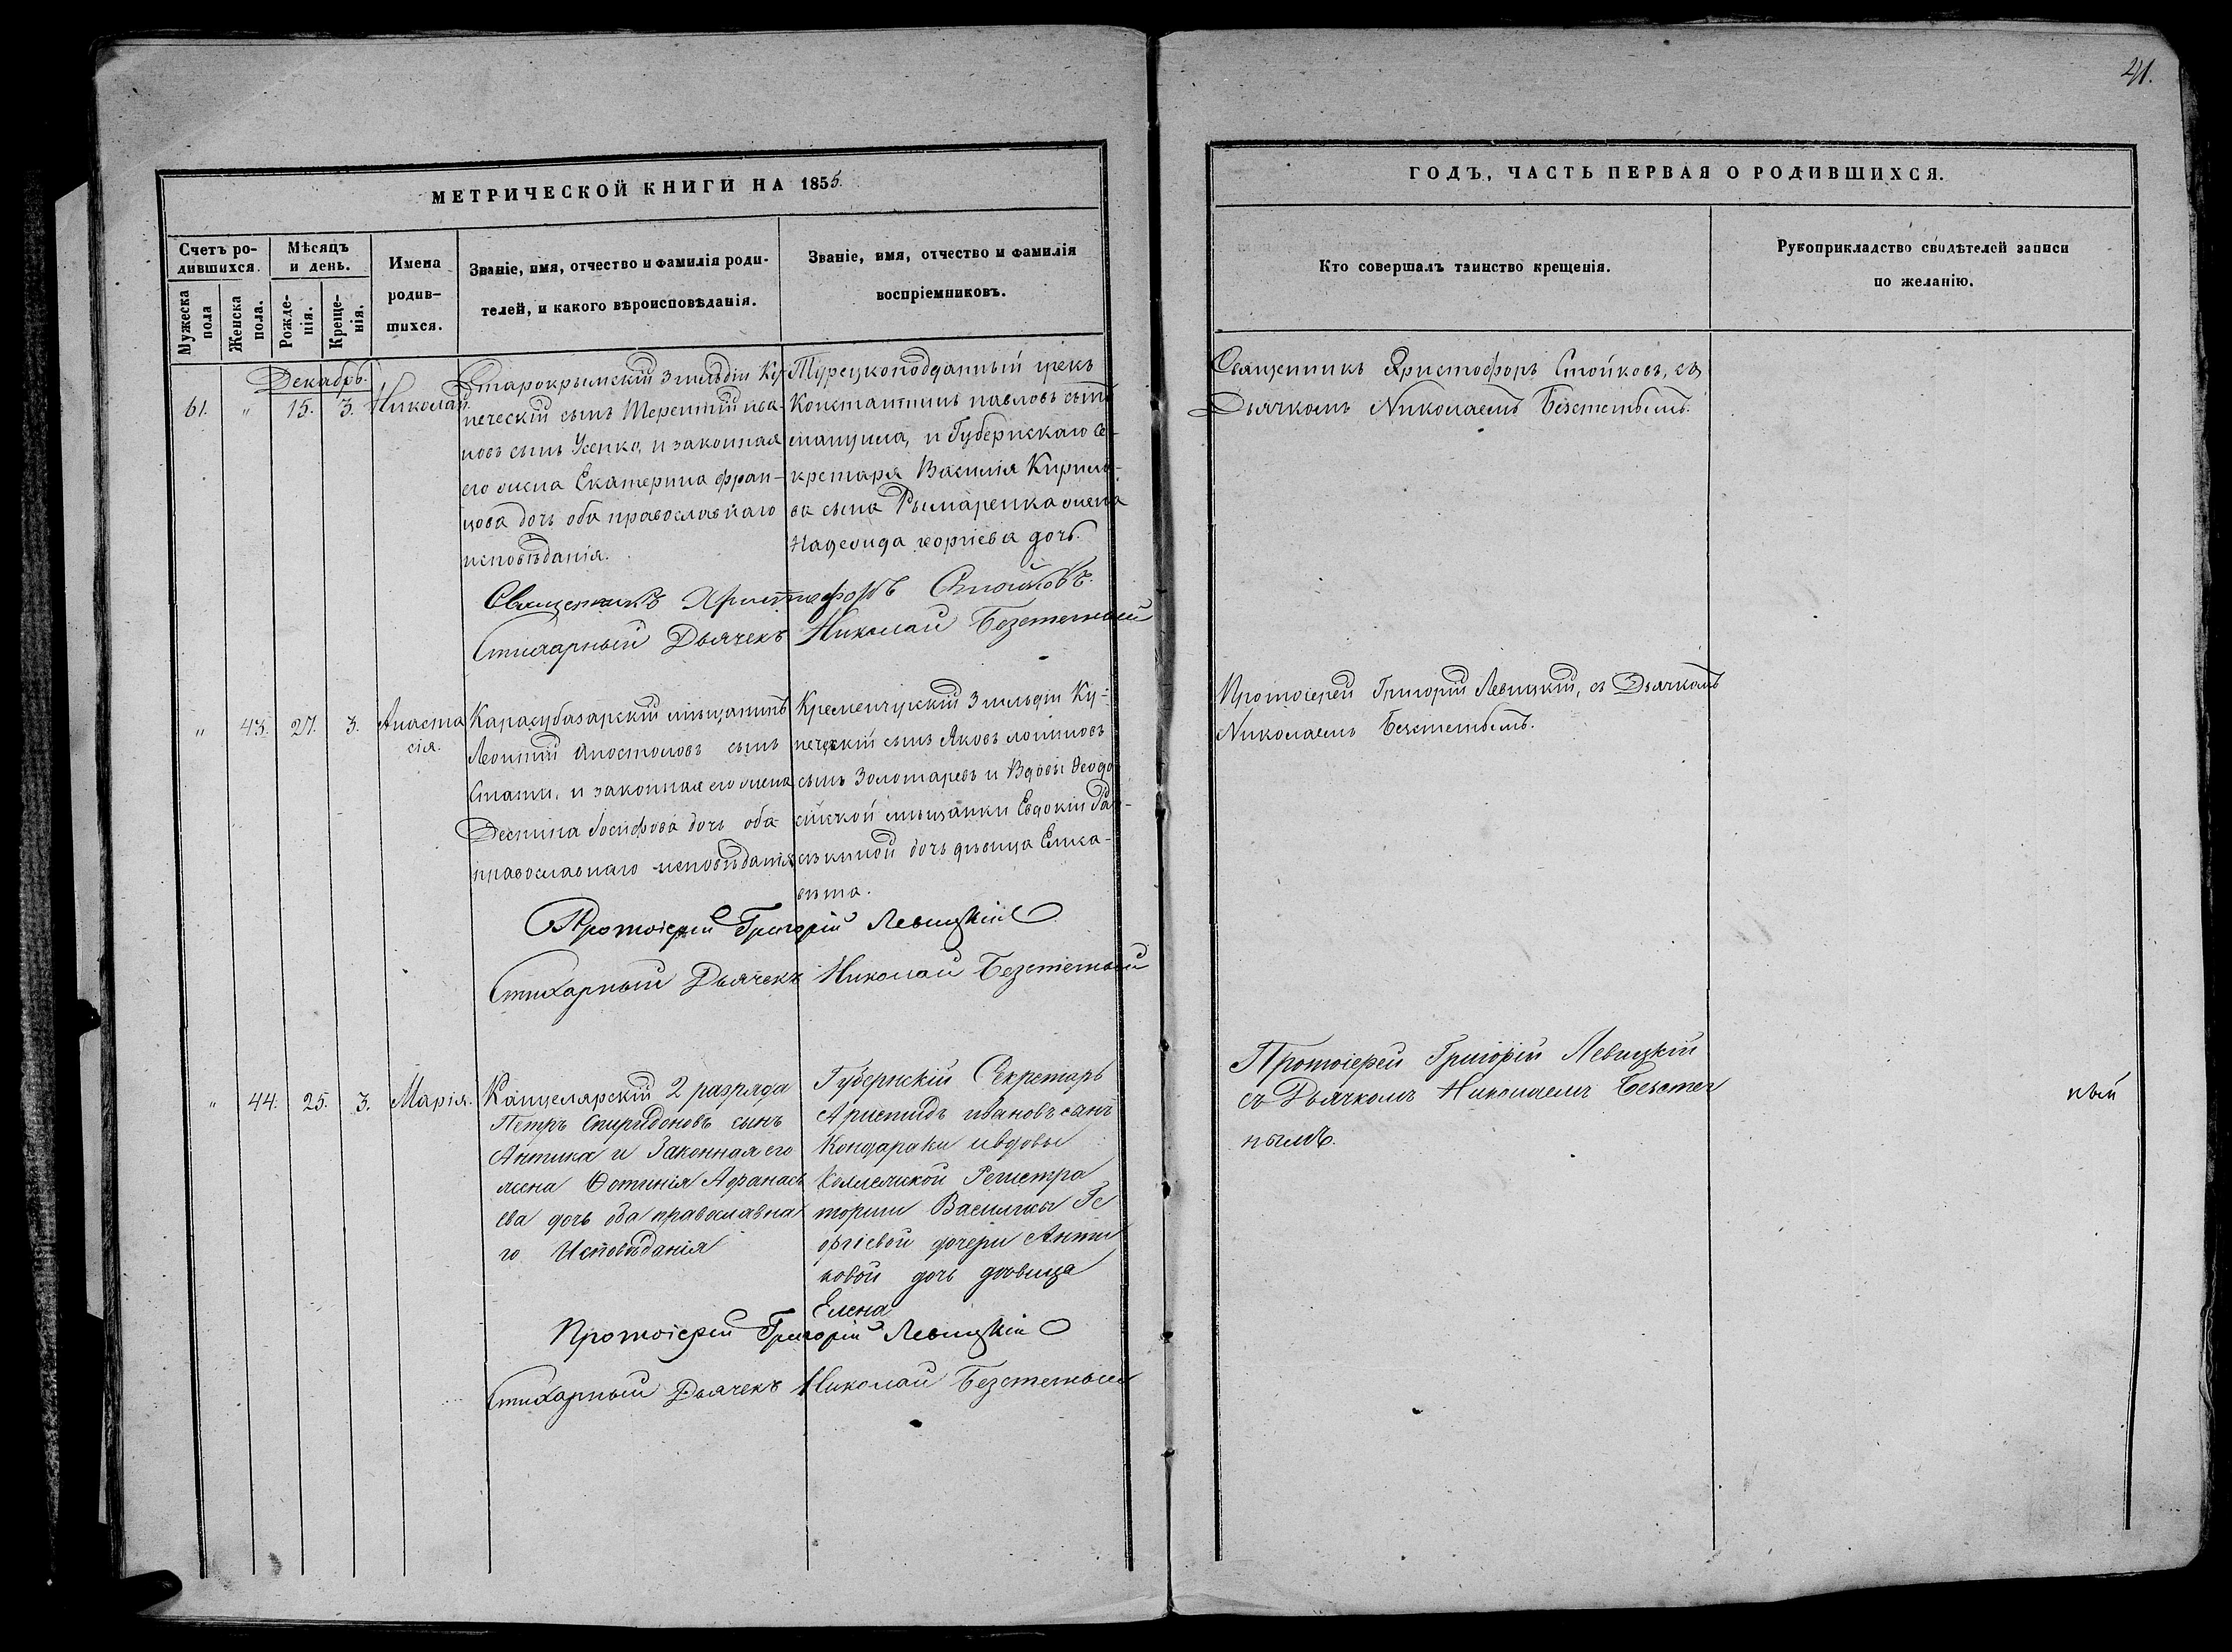 41.
МЕТРИЧЕСКОЙ КНИГИ НА 1855.
Счетъ ро-
дившихся.
Мужеска
пола
Женска
пола.
Мѣсяцъ
и день.
Рожде-
нія.
Креще-
нія.
Имена
родив-
шихся.
Званіе, имя, отчество и фамилія роди-
телей, и какого вѣроисповѣданія.
Званіе, имя, отчество и фамилія
воспріемниковъ.
ГОДЪ, ЧАСТЬ ПЕРВАЯ О РОДИВШИХСЯ.
Кто совершалъ таинство крещенія.
Рукоприкладство свидѣтелей записи
по желанію.
Декабрь.
61. " 15. 3. Николай.
Старокрымскій 3 гильдіи Ку-
печескій сынъ Терентій ива-
новъ сынъ Усенко, и законная
его жена Екатерина фран-
цова дочь оба православнаго
исповѣданія.
Турецкоподданный грекъ
Константинъ павловъ сынъ
и Губернскаго Се-
кретаря Василія Кирило-
ва сына Рымаренка жена
Надежда георгіева дочь.
Священникъ Христофоръ Стойковъ, съ
Дьячкомъ Николаемъ Безстетнымъ.
Священникъ Христофоръ Стойковъ.
Стихарный Дьячекъ Николай Безстетный
" 43. 27. 3. Анаста
сія.
Карасубазарскій мѣщанинъ
Леонтій Апостоловъ сынъ
и законная его жена
Деспина Іосифова дочь оба
православнаго исповѣданія
Кременчугскій 3 гильдіи Ку-
печескій сынъ Яковъ логиновъ
сынъ Золотаревъ и Вдовы Ѳеодо
сійской мѣщанки Евдокіи
дочь дѣвица Елиса-
вета.
Протоіерей Григорій Левицкій, съ Дьячкомъ
Николаемъ Безстетнымъ.
Протоіерей Григорій Левицкій
Стихарный Дьячекъ Николай Безстетный
" 44. 25. 3. Марія.
Канцелярскій 2 разряда
Петръ Спиридоновъ сынъ
Антика и Законная его
жена Фотинія Афанась
ева дочь оба православна
го Исповѣданія
Губернскій Секретарь
Аристидъ ивановъ сынъ
Кондараки и вдовы
Коллежской Регистра
торши Василики Ге
оргіевой дочери Анти
ковой дочь дѣвица
Елена
Протоіерей Григорій Левицкій
съ Дьячкомъ Николаемъ Безстет
нымъ.
ный
Протоіерей Григорій Левицкій
Стихарный Дьячекъ Николай Безстетный